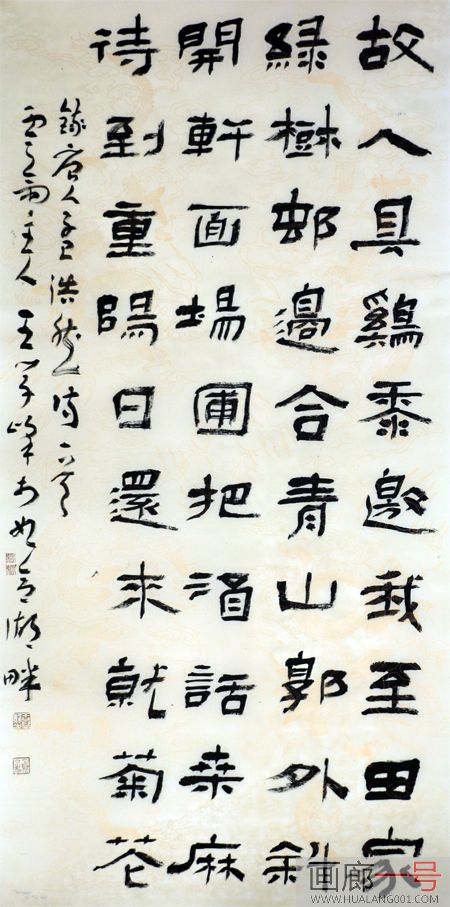 故人具鷄黍邀我至田家
綠樹邨邊合青山郭外斜
開軒面場圃把酒話桑麻
待到重陽日還來就菊花
錄唐人孟浩然詩一首
主人王学於如意湖畔
画廊一号
WWW.HUALANG001.COM